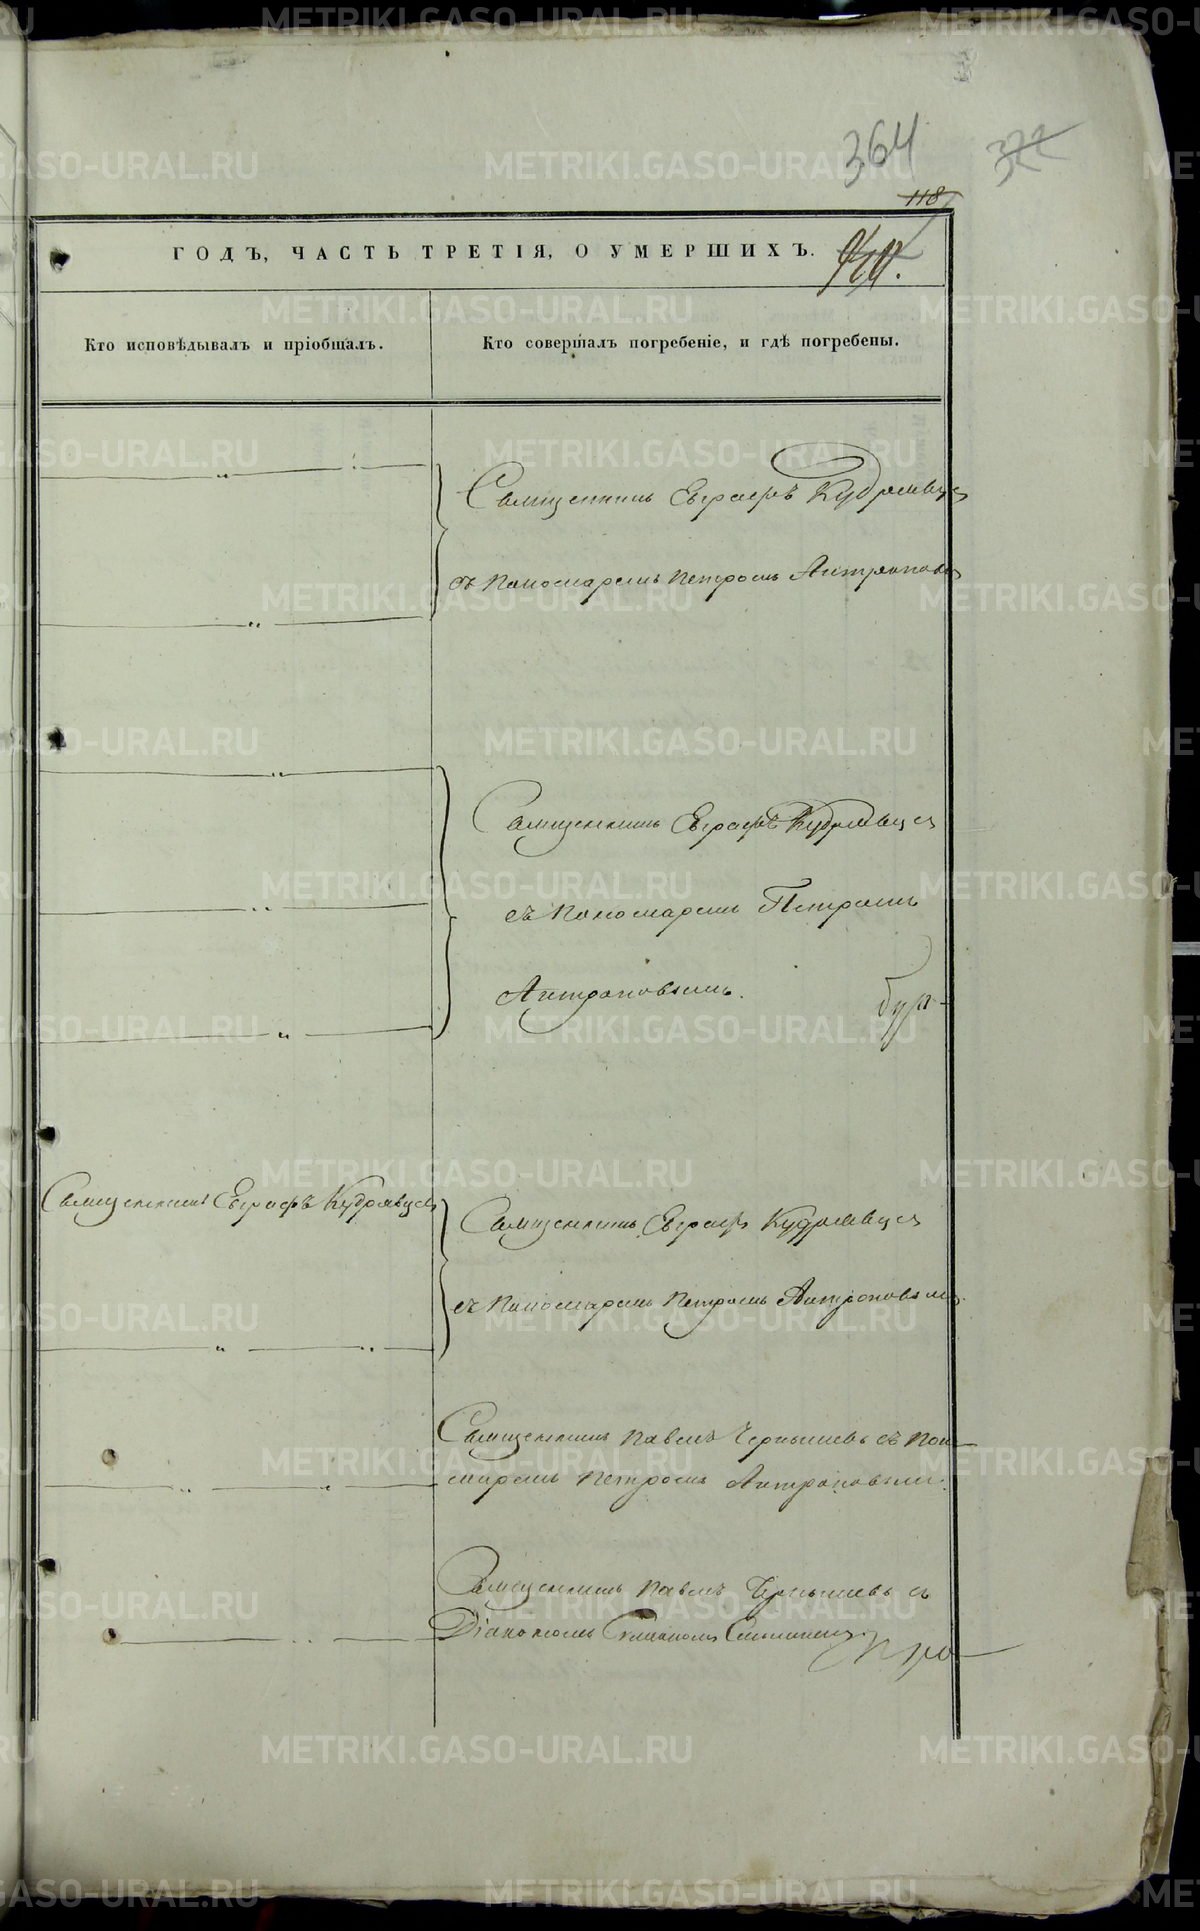 364
322
118
ГОДЪ, ЧАСТЬ ТРЕТІЯ, О УМЕРШИХЪ.
Кто исповѣдывалъ и пріобщалъ.
Кто совершалъ погребеніе, и гдѣ погребены.
Священникъ Евграфъ Кудрявцев
съ пономаремъ Петромъ Антропов
Священникъ Евграфъ Кудрявцев
съ пономаремъ Петромъ
Антроповымъ.
бур-
Священникъ Евграфъ Кудрявцев
Священникъ Евграфъ Кудрявцев
съ пономаремъ Петромъ Антроповым
Священникъ Павелъ Чернышевъ съ поно
маремъ Петромъ Антроповым.
Священникъ Павелъ Чернышевъ съ
Діакономъ
METRIKI.GASO-URAL.RU